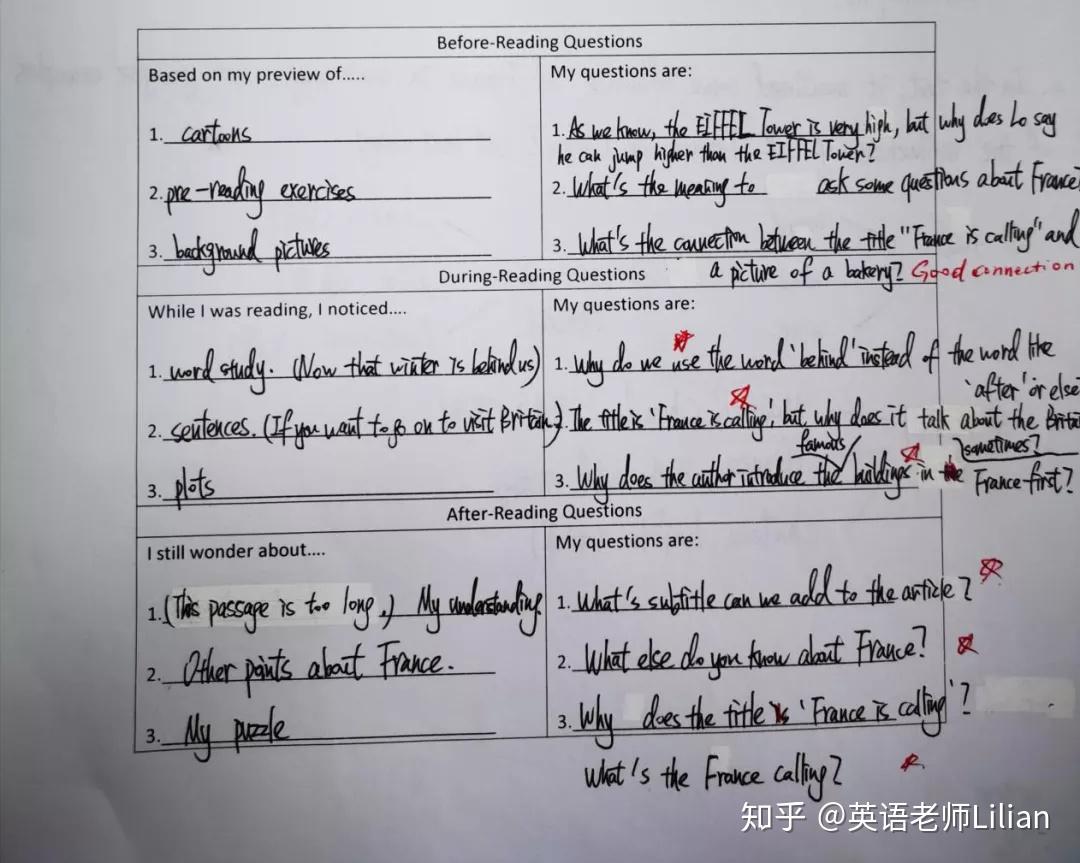 Before-Reading Questions
Based on my preview of.....
My questions are:
1. cartoons
1. As we know, the EIFFEL Tower is very high, but why does Lo say
he can jump higher than the EIFFEL Tower?
2. pre-reading exercises
2. What's the meaning to ask some questions about France?
3. background pictures
3. What's the connection between the title "France is calling" and
a picture of a bakery? Good connection
During-Reading Questions
While I was reading, I noticed....
My questions are:
1. word study. (Now that winter is behind us)
1. Why do we use the word 'behind' instead of the word like
'after' or else
2. sentences. (If you want to go on to visit Britain)
2. The title is 'France is calling', but why does it talk about the
famous
sometimes?
3. plots
3. Why does the author introduce the buildings in France first?
After-Reading Questions
I still wonder about....
My questions are:
1. (This passage is too long,) My understanding
1. What's subtitle can we add to the article?
2. Other points about France.
2. What else do you know about France?
3. My puzzle
3. Why does the title is 'France is calling'?
What's the France calling?
知乎 @英语老师Lilian